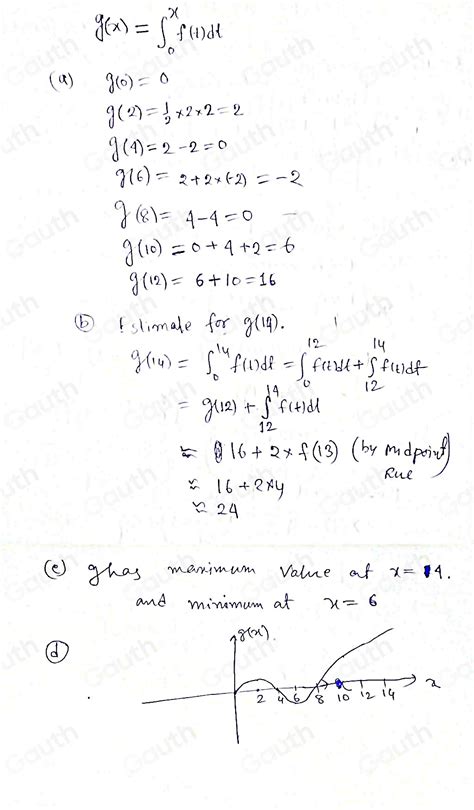 g(x) = ∫₀ˣ f(t)dt
(a) g(0) = 0
g(2) = 1/2 × 2 × 2 = 2
g(4) = 2 - 2 = 0
g(6) = 2 + 2 × (-2) = -2
g(8) = 4 - 4 = 0
g(10) = 0 + 4 + 2 = 6
g(12) = 6 + 10 = 16
(b) Estimate for g(14).
g(14) = ∫₀¹⁴ f(t)dt = ∫₀¹² f(t)dt + ∫₁₂¹⁴ f(t)dt
= g(12) + ∫₁₂¹⁴ f(t)dt
≈ 16 + 2 × f(13) (by midpoint
Rue
≈ 16 + 2×4
≈ 24
(c) g has maximum value at x = 14.
and minimum at x = 6
(d) g(x).
2 4 6 8 10 12 14 x
Gauth